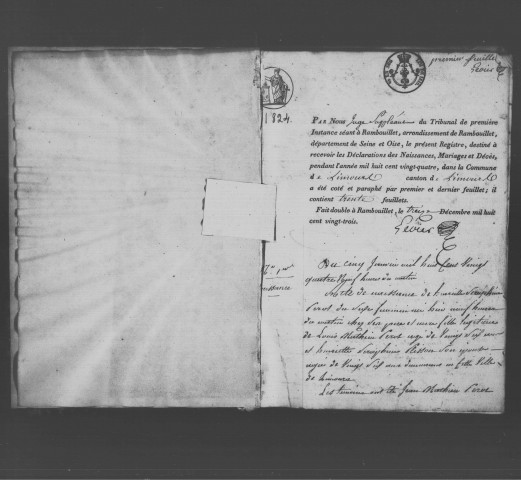 premier feuillet
1824.
PAR NOUS Juge Suppléant du Tribunal de première
Instance séant à Rambouillet, arrondissement de Rambouillet,
département de Seine et Oise, le présent Registre, destiné à
recevoir les Déclarations des Naissances, Mariages et Décès,
pendant l'année mil huit cent vingt-quatre, dans la Commune
d e Limours canton d e Limours
a été coté et paraphé par premier et dernier feuillet; il
contient trente feuillets.
Fait double à Rambouillet, le treize Décembre mil huit
cent vingt-trois.
Du cinq Janvier mil huit Cent Vingt
quatre neuf heures du matin
Acte de naissance de
Perot du
du matin chez Ses pere et mere fille legitime
de Louis Mathieu Perot age de Vingt Sept ans
et henriette Seraphine Son epouse
agée de Vingt Sept ans demeurans en cette Ville
de Limours
Les temoins ont été Jean Mathieu Perot